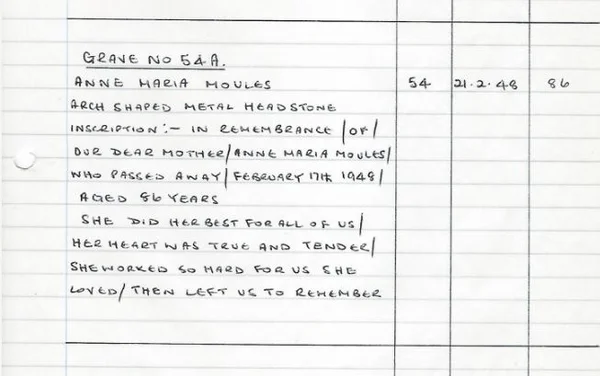 GRAVE NO 54A.
ANNE MARIA MOULES 54 21.2.48 86
ARCH SHAPED METAL HEADSTONE
INSCRIPTION:- IN REMEMBRANCE / OF /
OUR DEAR MOTHER / ANNE MARIA MOULES /
WHO PASSED AWAY / FEBRUARY 17TH 1948 /
AGED 86 YEARS
SHE DID HER BEST FOR ALL OF US /
HER HEART WAS TRUE AND TENDER /
SHE WORKED SO HARD FOR US SHE
LOVED / THEN LEFT US TO REMEMBER